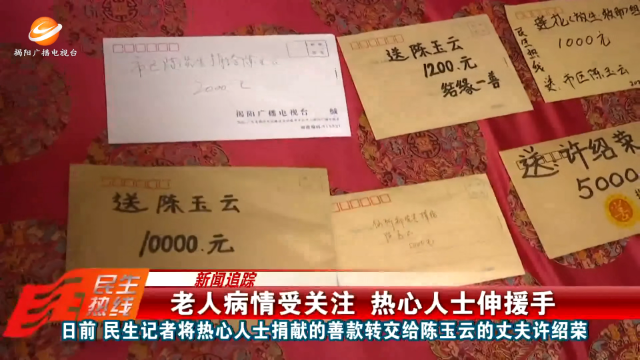 揭阳广播电视台
2000元
揭阳广播电视台 缄
送 陈玉云
1200.元
结缘一善
1000元
民生热线
送 市区陈玉云
送 许绍荣
5000
送 陈玉云
10000.元
民生热线
新闻追踪
老人病情受关注 热心人士伸援手
日前 民生记者将热心人士捐献的善款转交给陈玉云的丈夫许绍荣